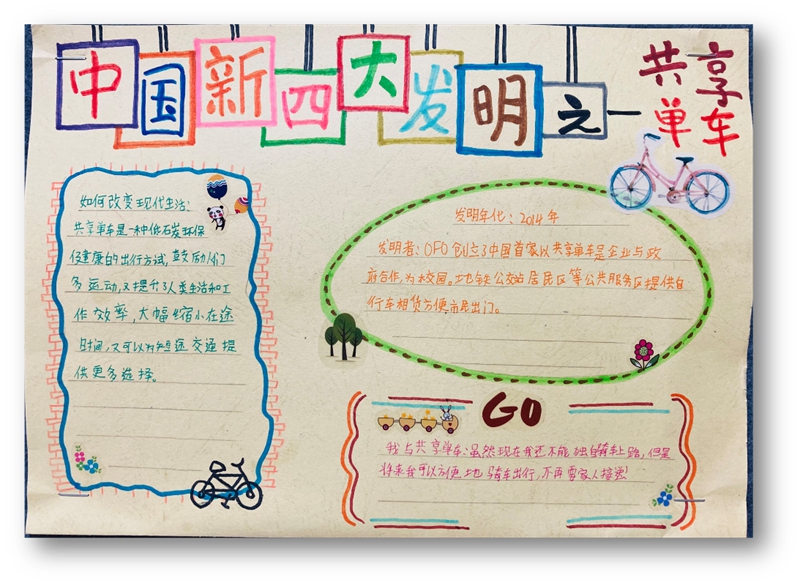 中国新四大发明之一
共享
单车
如何改变现代生活:
共享单车是一种低碳环保
健康的出行方式,鼓励人们
多运动,又提升了人类生活和工
作效率,大幅缩小在途
时间,又可以为短途交通提
供更多选择。
发明年代:2014年
发明者:OFO创立了中国首家以共享单车是企业与政
府合作,为校园。地铁公交站居民区等公共服务区提供自
行车租赁方便市民出门。
GO
我与共享单车:虽然现在我还不能独自骑车上路,但是
将来我可以方便地骑车出行,不再需家人接送!